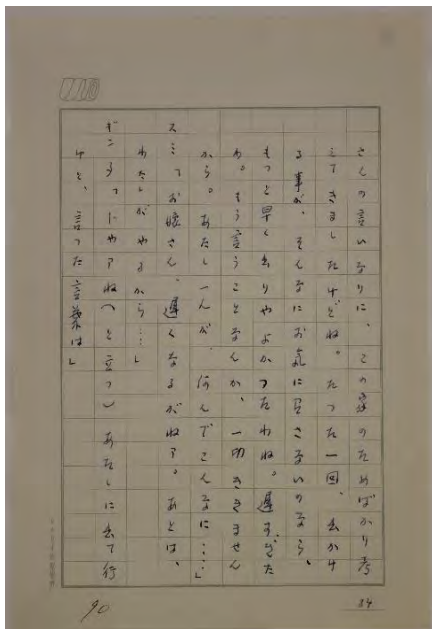 さんの言いなりに、この家のためばかり考
えてきましたけどね。たった一回、出かけ
る事が、そんなにお気に召さないのなら、
もっと早く出りやよかったわね。遅すぎた
わ。もう言うことなんか、一切ききません
から。あたし一人が、何んでこんなに…」
スミ「お嬢さん、遅くなるがねァ。あとは、
わたしがやるから…」
ギン「うつにやアねへと立つ)あたしに出て行
けと、言った言葉は」
90
84